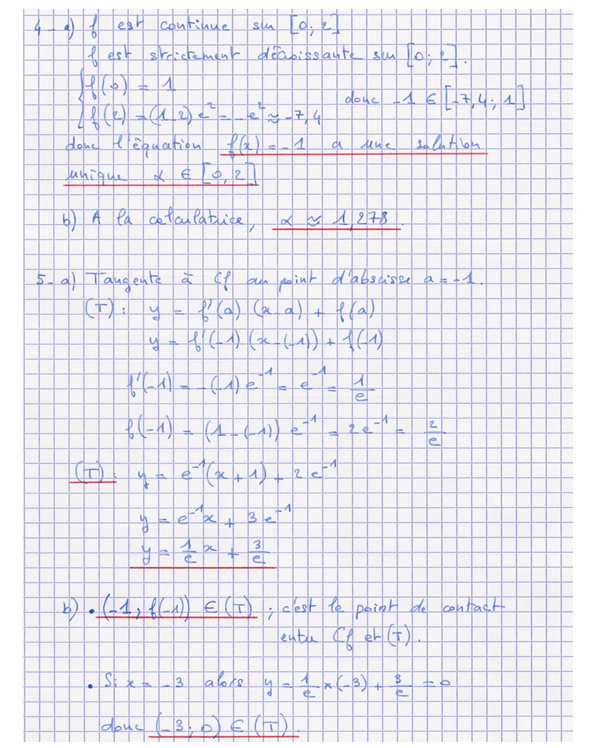 4-a) f est continue sur [0; 2]
f est strictement décroissante sur [0; 2].
{ f(0) = 1
{ f(2) = (1-2) e² = -e² ≈ -7,4 donc -1 ∈ [-7,4; 1]
donc l'équation f(x) = -1 a une solution
unique α ∈ [0, 2]
b) A la calculatrice, α ≈ 1,278.
5-a) Tangente à Cf au point d'abscisse a = -1.
(T): y = f'(a) (x-a) + f(a)
y = f'(-1) (x-(-1)) + f(-1)
f'(-1) = -(-1) e⁻¹ = e⁻¹ = 1/e
f(-1) = (1-(-1)) e⁻¹ = 2e⁻¹ = 2/e
(T): y = e⁻¹(x+1) + 2e⁻¹
y = e⁻¹x + 3e⁻¹
y = 1/e x + 3/e
b) • (-1; f(-1)) ∈ (T) ; c'est le point de contact
entre Cf et (T).
• Si x = -3 alors y = 1/e × (-3) + 3/e = 0
donc (-3; 0) ∈ (T).